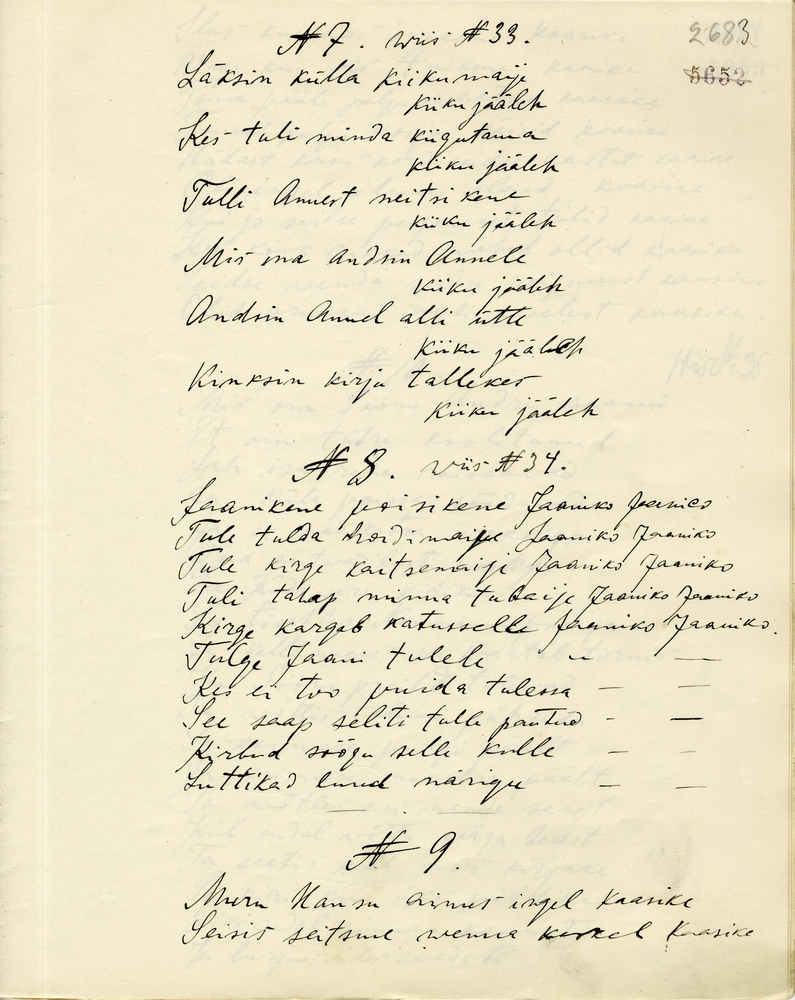 2683
5652
№ 7. wiis № 33.
Läksin külla kiikumaije
Kiiku jääleh
Kes tuli minda kiigutama
kiiku jääleh
Tulli Annest neitsikene
kiiku jääleh
Mis ma andsin Annele
Kiiku jääleh
Andsin Annel alli ütte
Kiiku jääleh
Kinksin kirju tallekes
Kiiku jääleh
№ 8. wiis № 34.
Jaanikene poisikene Jaaniko Jaaniko
Tule tulda hoidimaije Jaaniko Jaaniko
Tule kirge kaitsemaije Jaaniko Jaaniko
Tuli tahap minna tubaije Jaaniko Jaaniko
Kirge kargab katusselle Jaaniko Jaaniko.
Tulge Jaani tulele " —
Kes ei too puida tulessa — —
See saap seliti tulle pantud - —
Kirbud söögu selle kulle — —
Luttikad luud närigu — —
№ 9.
Muru Hansu ainus irgel Kaasike
Seisis seitsme wenna keskel Kaasike